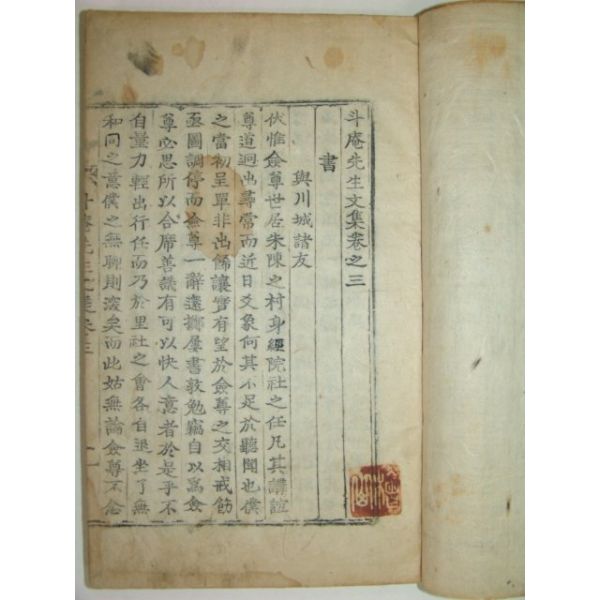 斗庵先生文集卷之三
書
與川城諸友
伏惟僉尊世居朱陳之村身經院社之任凡其講誼
尊道迥出尋常而近日爻象何其不足於聽聞也僕
之當初呈單非出餙讓實有望於僉尊之交相戒飭
亟圖調停而僉尊一辭遠擲羣書敦勉竊自以爲僉
尊必思所以合席善謀有可以快人意者於是乎不
自量力輕出行任而乃於里社之會各自退坐了無
和同之意僕之無聊則淺矣而此姑無論僉尊不念
斗庵先生文集卷三